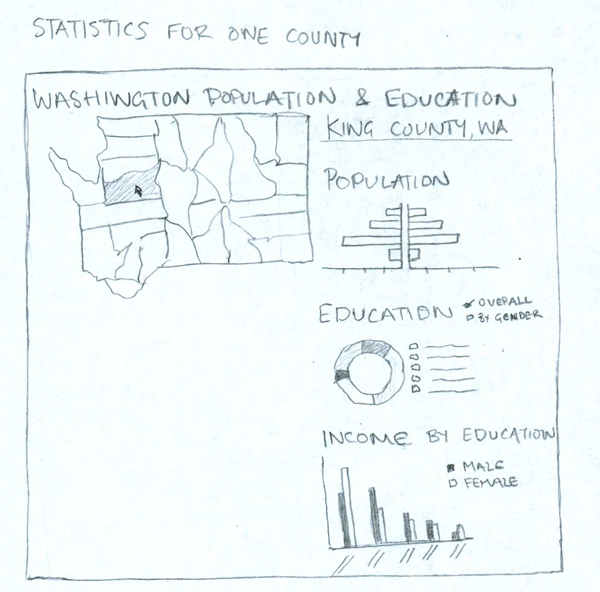 STATISTICS FOR ONE COUNTY
WASHINGTON POPULATION & EDUCATION
KING COUNTY, WA
POPULATION
EDUCATION
OVERALL
BY GENDER
INCOME BY EDUCATION
MALE
FEMALE